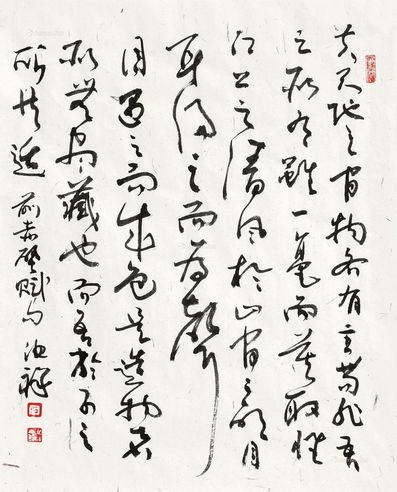 夫天地之間物各有主苟非吾
之所有雖一毫而莫取惟
江上之清風於山間之明月
耳得之而為聲
目遇之而成色是造物者
無盡藏也而吾於子之
所共適 前赤壁賦句